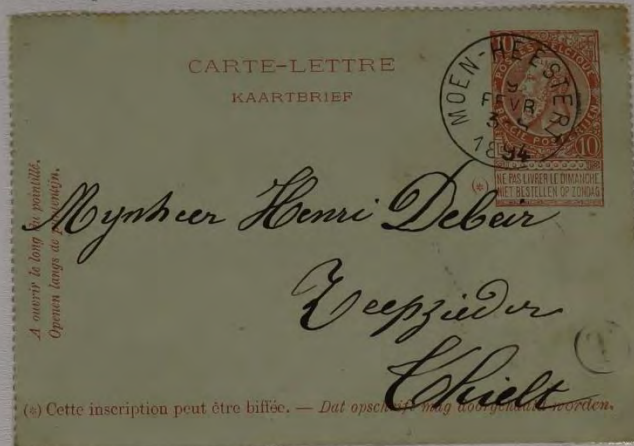 CARTE-LETTRE
KAARTBRIEF
10 POSTES BELGIQUE 10
MOEN-HEESTERT
9
FEVR
1894
(*) NE PAS LIVRER LE DIMANCHE
NIET BESTELLEN OP ZONDAG
A ouvrir le long du pointillé.
Openen langs de
Mynheer Henri Debeir
Zeepzieder
Thielt
(*) Cette inscription peut être biffée. — Dat opschrift mag doorgehaald worden.